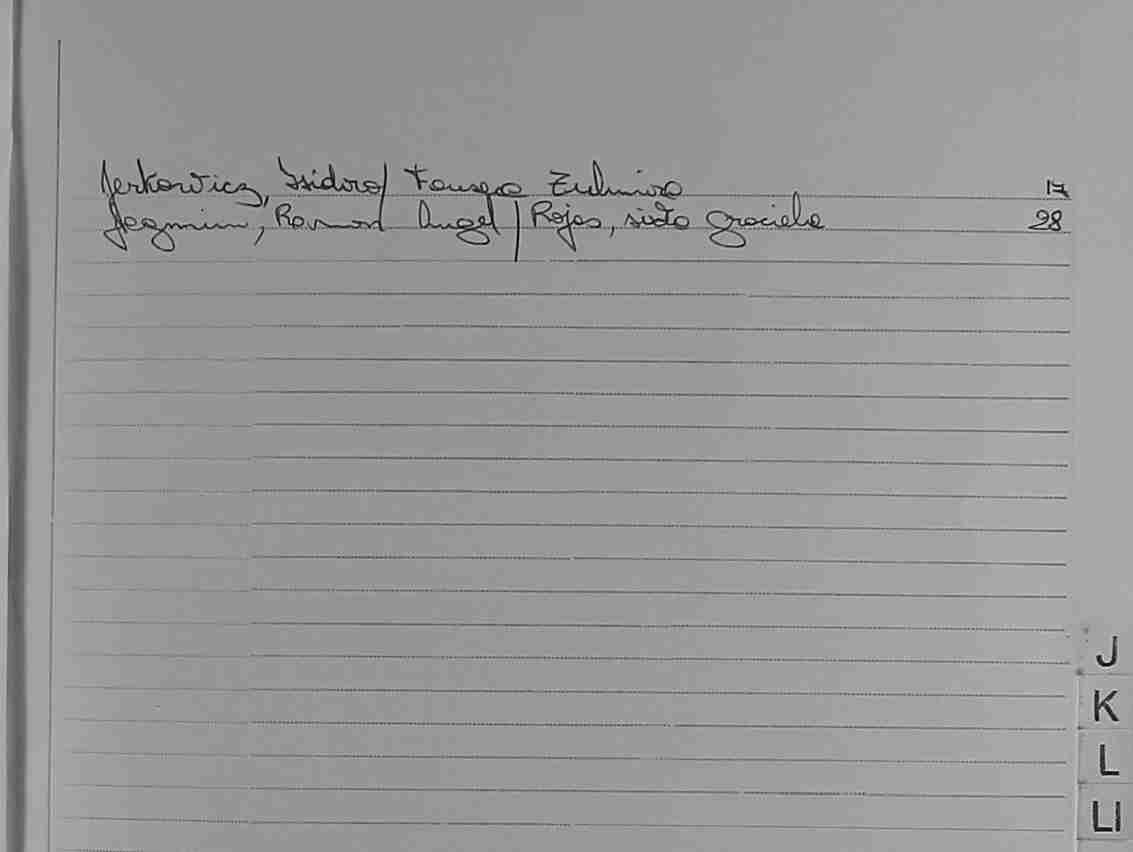 Jerkowicz, Isidro/ Fonseca Zulmira 17
Jeqmium, Ramon Angel | Rojas, sixto graciela 28
J
K
L
Ll